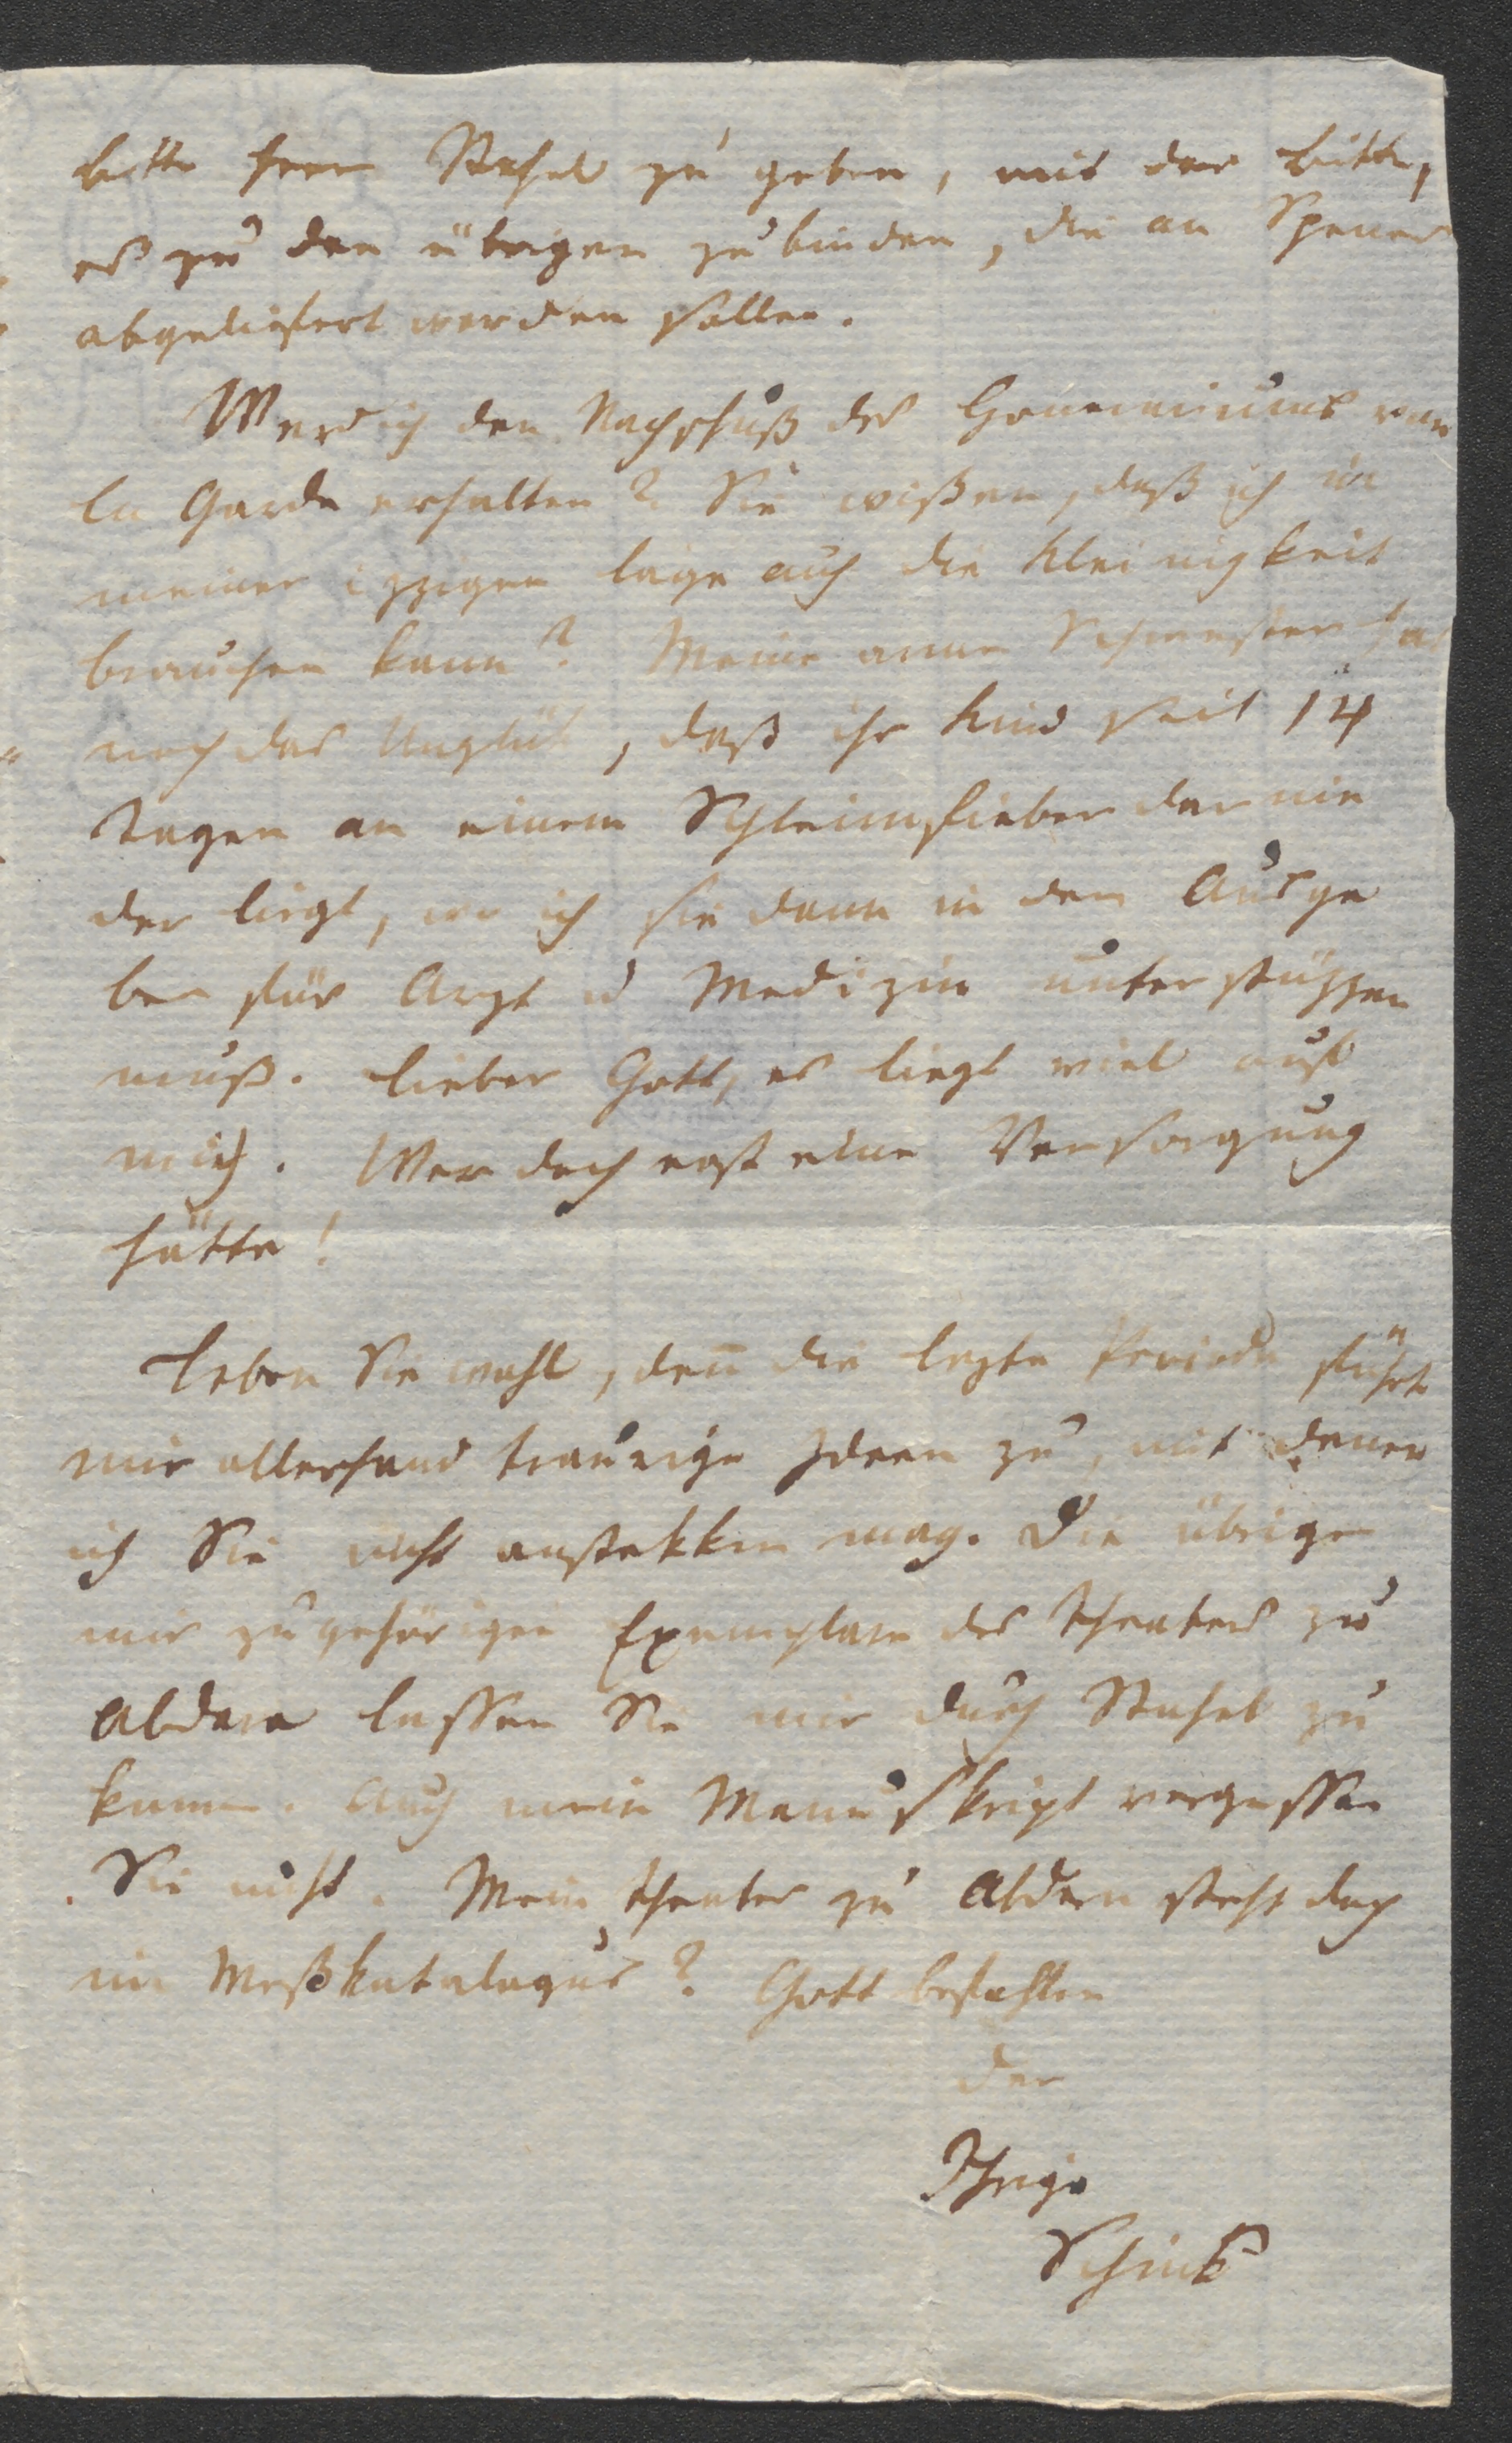 bitte Herrn Stahel zu geben, mit der Bitte,
es zu den übrigen zu binden, die an Spener
abgeliefert werden sollen.
Werd ich den Nachschuß des Honorariums von
la Garde erhalten? Sie wißen, daß ich in
meiner izzigen Lage auch die Kleinigkeit
brauchen kann? Meine arme Schwester hat
noch das Unglük, daß ihr Kind seit 14
Tagen an einem Schleimfieber darnie
der liegt, wo ich sie dann in den Ausga
ben für Arzt u Medizin unterstüzzen
muß. Lieber Gott, es liegt viel auf
mich. Wer doch erst eine Versorgung
hätte!
Leben Sie wohl, deñ die lezte Periode führt
mir allerhand traurige Ideen zu, mit denen
ich Sie nicht anstekken mag. Die übrigen
mir zugehörigen Exemplare des Theaters zu
Abdera lassen Sie mir durch Stahel zu
kommen. Auch mein Manuskript vergessen
Sie nicht. Mein Theater zu Abdera steht doch
im Meßkatalogus? Gott befohlen
der
Ihrige
Schink